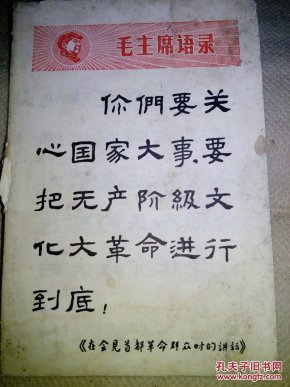 毛主席语录
你們要关
心国家大事,要
把无产阶級文
化大革命进行
到底!
《在会見首都革命群众时的讲話》
孔夫子旧书网